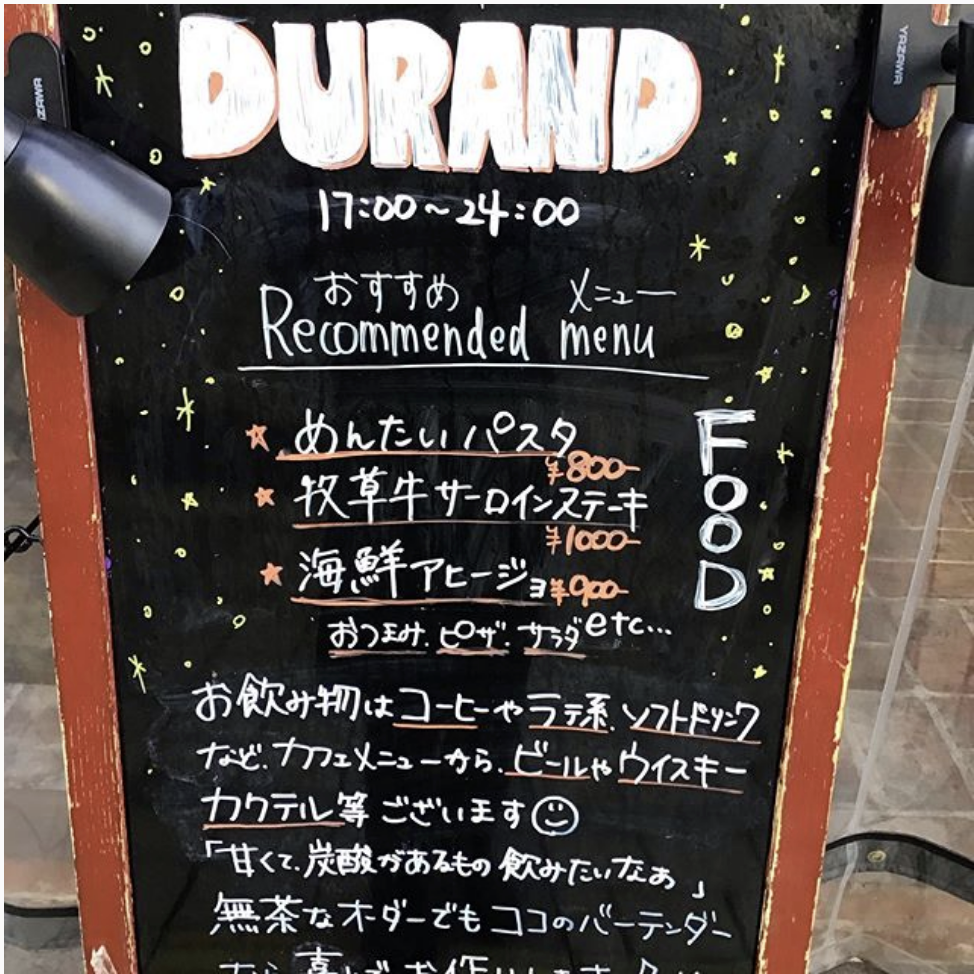 DURAND
YAZAWA
17:00~24:00
おすすめ メニュー
Recommended menu
FOOD
めんたいパスタ
¥800-
牧草牛サーロインステーキ
¥1000-
海鮮アヒージョ ¥900-
おつまみ.ピザ.サラダ etc...
お飲み物はコーヒーやラテ系.ソフトドリンク
など.カフェメニューから.ビールやウイスキー
カクテル等ございます
「甘くて.炭酸があるもの飲みたいなぁ」
無茶なオーダーでもココのバーテンダー
なら喜んでお作りします